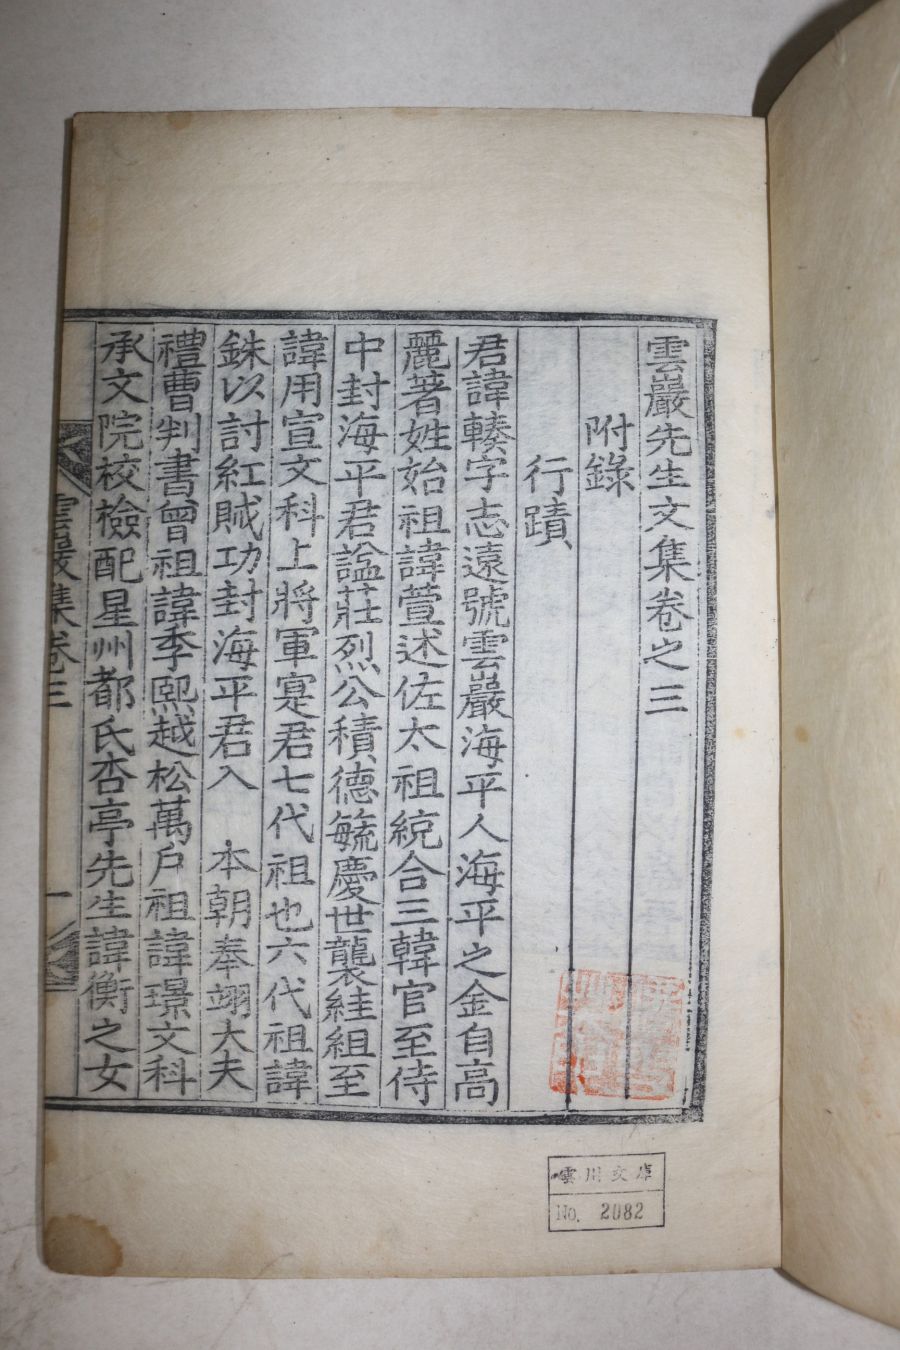 雲巖先生文集卷之三
附錄
行蹟
君諱輳字志遠號雲巖海平人海平之金自高
麗著姓始祖諱萱述佐太祖統合三韓官至侍
中封海平君謚莊烈公積德毓慶世襲絓組至
諱用宣文科上將軍寔君七代祖也六代祖諱
銖以討紅賊功封海平君入 本朝奉翊大夫
禮曹判書曾祖諱季熙越松萬戶祖諱璟文科
承文院校檢配星州都氏杏亭先生諱衡之女
雲巖集卷三 一
雲川文庫
No. 2082